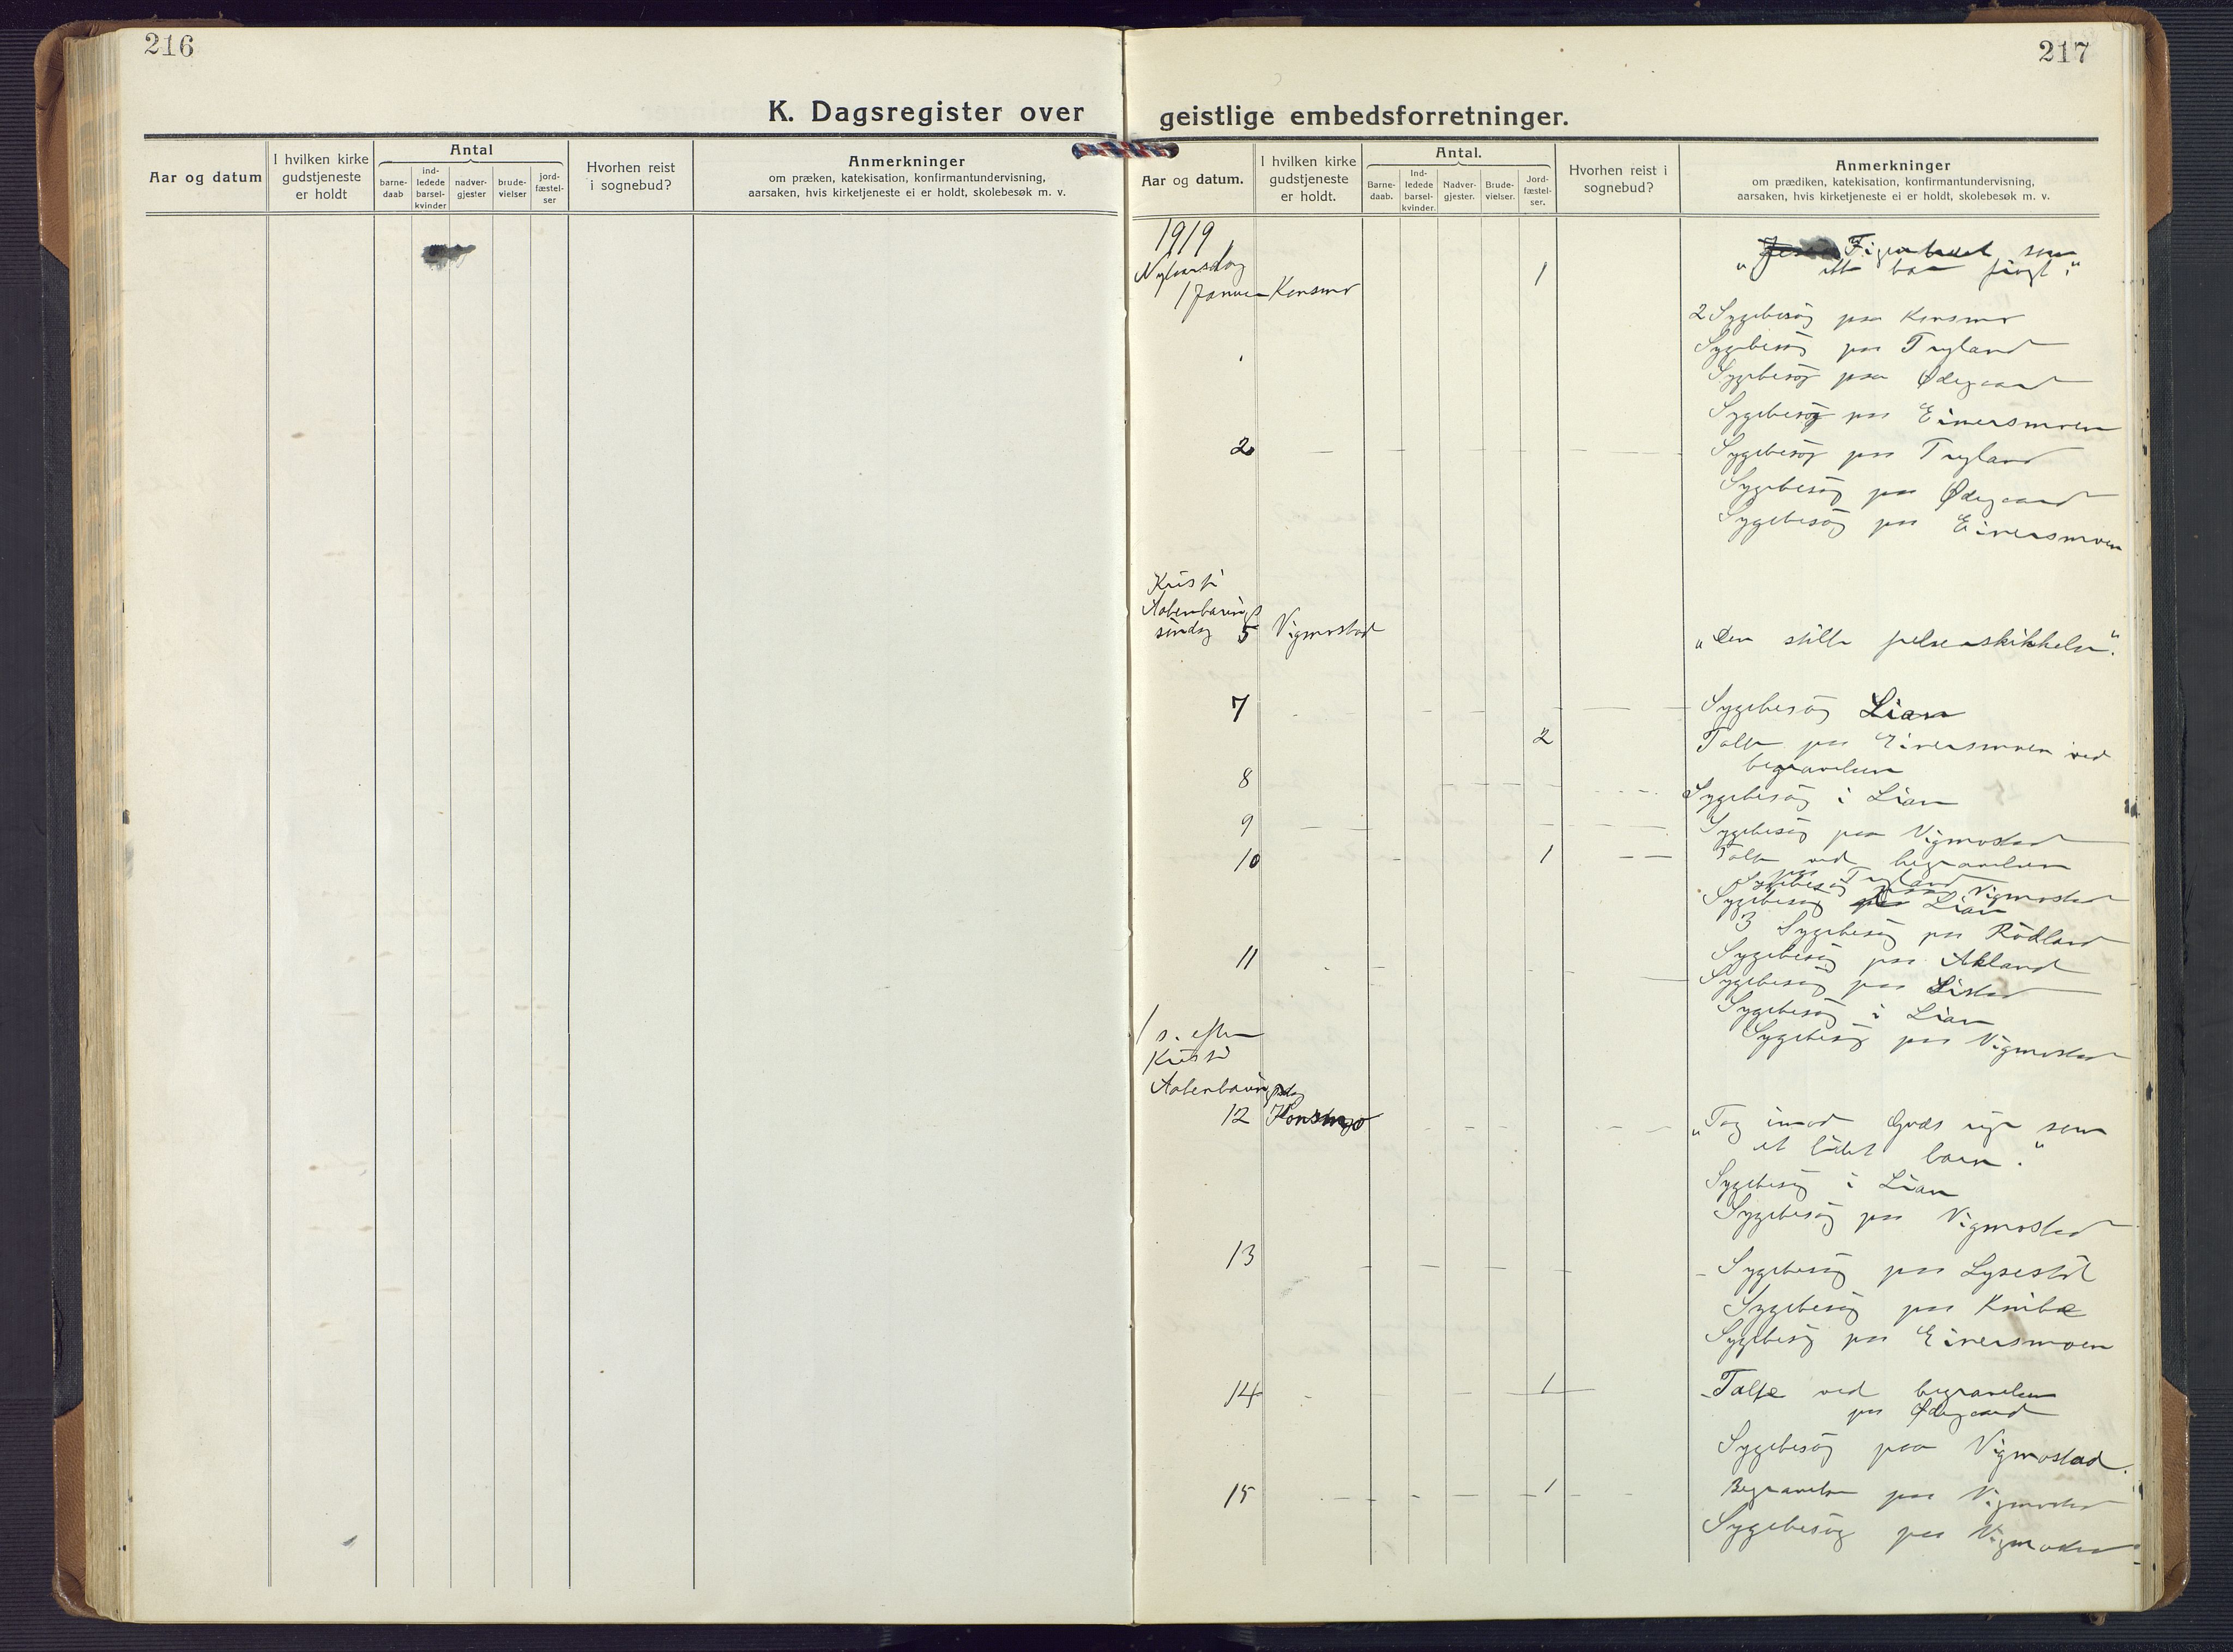 216
K. Dagsregister over
Aar og datum
I hvilken kirke
gudstjeneste
er holdt
Antal
barne-
daab
ind-
ledede
barsel-
kvinder
nadver-
gjester
brude-
vielser
jord-
fæstel-
ser
Hvorhen reist
i sognebud?
Anmerkninger
om præken, katekisation, konfirmantundervisning,
aarsaken, hvis kirketjeneste ei er holdt, skolebesøk m. v.
217
geistlige embedsforretninger.
Aar og datum.
I hvilken kirke
gudstjeneste
er holdt.
Antal.
Barne-
daab.
Ind-
ledede
barsel-
kvinder.
Nadver-
gjester.
Brude-
vielser.
Jord-
fæstel-
ser.
Hvorhen reist i
sognebud?
Anmerkninger
om prædiken, katekisation, konfirmantundervisning,
aarsaken, hvis kirketjeneste ei er holdt, skolebesøk m. v.
1919
Nytaarsdag
1 Januar Konsmo 1 Figentræet som
bar frugt."
2 Sygebesøg paa Konsmo
Sygebesøg paa Trygland
Sygebesøg paa Ødegaard
Sygebesøg paa Eiversmoen
2 Sygebesøg paa Trygland
Sygebesøg paa Ødegaard
Sygebesøg paa Eiversmoen
Kristi
Aabenbarings
søndag 5 Vigmostad „Den stille frelserskikkelse."
7 Sygebesøg Lian
2 Tale paa Eiversmoen ved
begravelsen
8 Sygebesøg i Lian
9 Sygebesøg paa Vigmostad
10 1 Tale ved begravelsen
paa Trygland
Sygebesøg paa Vigmostad
Sygebesøg Lian
3 Sygebesøg paa Rødland
11 Sygebesøg paa Akland
Sygebesøg paa Listad
Sygebesøg i Lian
Sygebesøg paa Vigmostad
1 s. efter
Kristi
Aabenbaringsdag
12 Konsmo „Tag imod Guds rige som
et lidet barn."
Sygebesøg i Lian
Sygebesøg paa Vigmostad
13 Sygebesøg paa Lysestøl
Sygebesøg paa Knibe
Sygebesøg paa Eiversmoen
14 1 Tale ved begravelsen
paa Ødegaard
Sygebesøg paa Vigmostad.
15 1 Begravelse paa Vigmostad
Sygebesøg paa Vigmostad